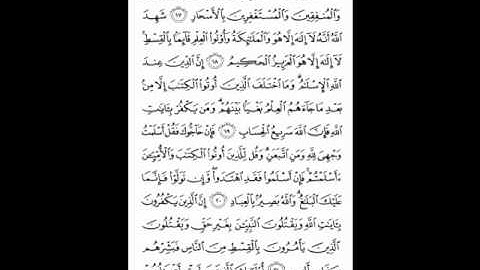 وَٱلْمُنفِقِينَ وَٱلْمُسْتَغْفِرِينَ بِٱلْأَسْحَارِ ١٧ شَهِدَ
ٱللَّهُ أَنَّهُۥ لَآ إِلَٰهَ إِلَّا هُوَ وَٱلْمَلَٰٓئِكَةُ وَأُو۟لُوا۟ ٱلْعِلْمِ قَآئِمًۢا بِٱلْقِسْطِ
لَآ إِلَٰهَ إِلَّا هُوَ ٱلْعَزِيزُ ٱلْحَكِيمُ ١٨ إِنَّ ٱلدِّينَ عِندَ
ٱللَّهِ ٱلْإِسْلَٰمُ ۗ وَمَا ٱخْتَلَفَ ٱلَّذِينَ أُوتُوا۟ ٱلْكِتَٰبَ إِلَّا مِنۢ
بَعْدِ مَا جَآءَهُمُ ٱلْعِلْمُ بَغْيًۢا بَيْنَهُمْ ۗ وَمَن يَكْفُرْ بِـَٔايَٰتِ
ٱللَّهِ فَإِنَّ ٱللَّهَ سَرِيعُ ٱلْحِسَابِ ١٩ فَإِنْ حَآجُّوكَ فَقُلْ أَسْلَمْتُ
وَجْهِىَ لِلَّهِ وَمَنِ ٱتَّبَعَنِ ۗ وَقُل لِّلَّذِينَ أُوتُوا۟ ٱلْكِتَٰبَ وَٱلْأُمِّيِّـۧنَ
ءَأَسْلَمْتُمْ ۚ فَإِنْ أَسْلَمُوا۟ فَقَدِ ٱهْتَدَوا۟ ۖ وَّإِن تَوَلَّوْا۟ فَإِنَّمَا
عَلَيْكَ ٱلْبَلَٰغُ ۗ وَٱللَّهُ بَصِيرٌۢ بِٱلْعِبَادِ ٢٠ إِنَّ ٱلَّذِينَ يَكْفُرُونَ
بِـَٔايَٰتِ ٱللَّهِ وَيَقْتُلُونَ ٱلنَّبِيِّـۧنَ بِغَيْرِ حَقٍّ وَيَقْتُلُونَ
ٱلَّذِينَ يَأْمُرُونَ بِٱلْقِسْطِ مِنَ ٱلنَّاسِ فَبَشِّرْهُم